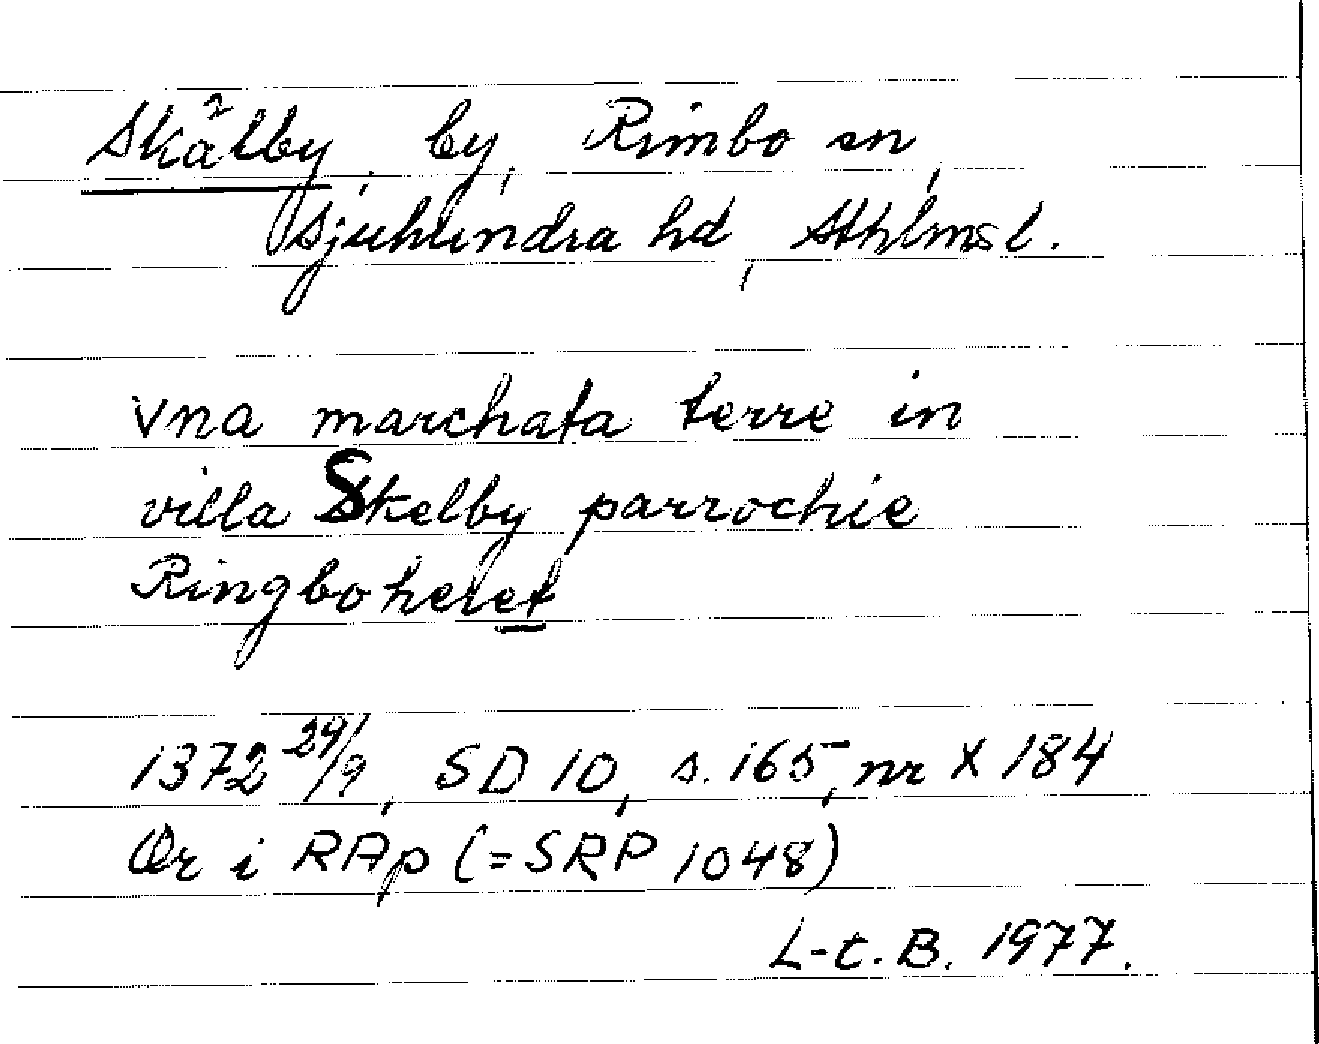 Skålby, by, Rimbo sn,
Sjuhundra hd, Sthlmsl.
Vna marchata terre in
villa Skelby parrochie
Ringboheret
1372 29/9, SD 10, s. 165, nr X 184
Or i RAp (=SRP 1048)
L-t. B. 1977.